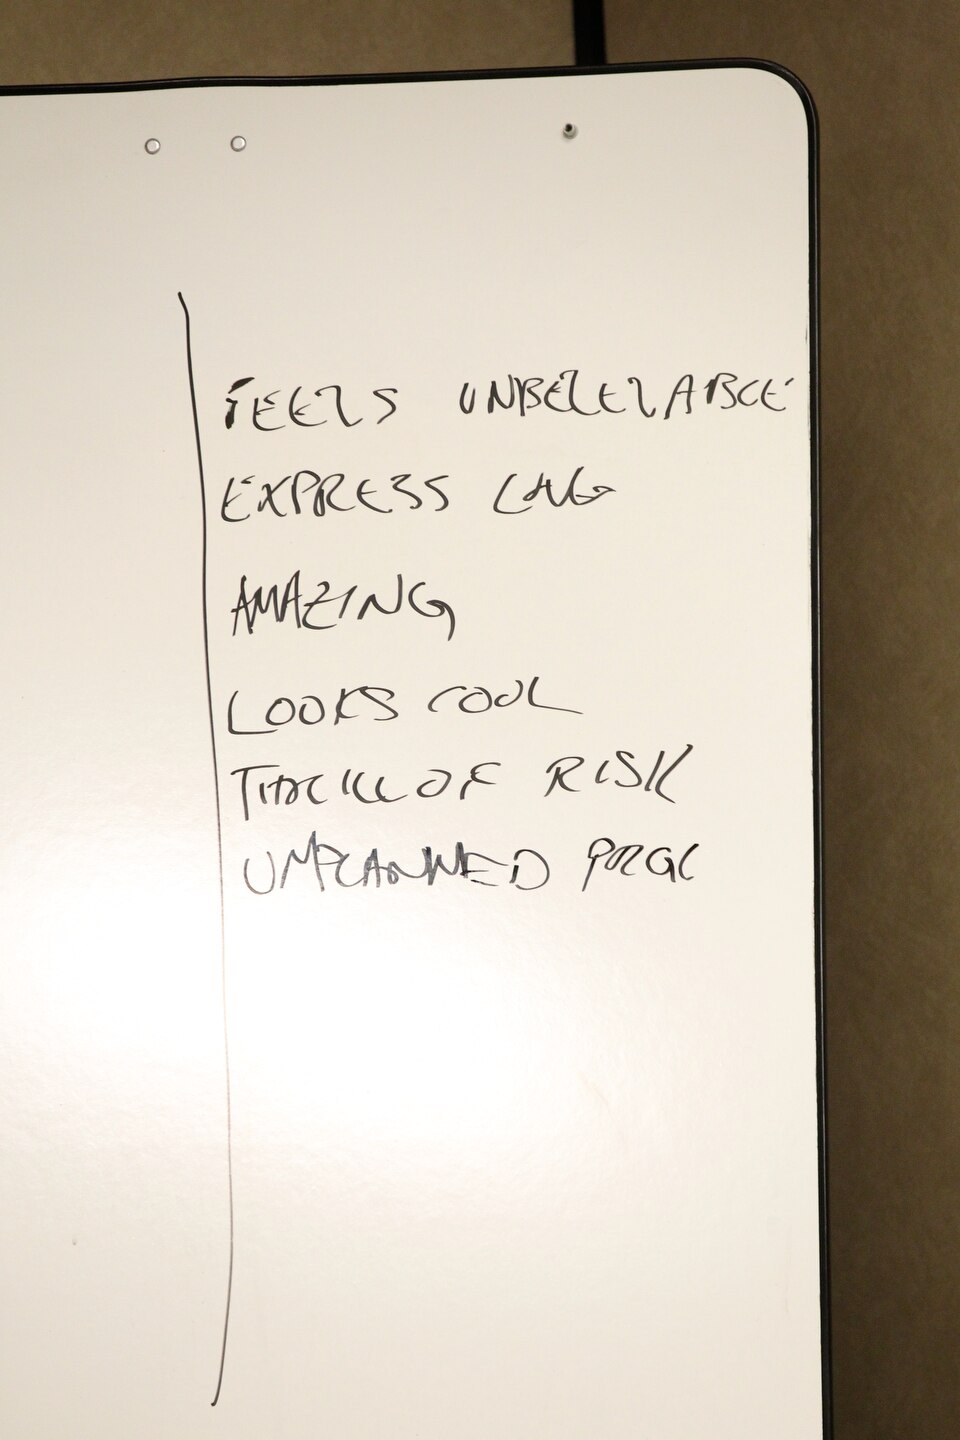 FEELS UNBELEIVABLE
EXPRESS
AMAZING
LOOKS COOL
THRILL OF RISK
UNPLANNED